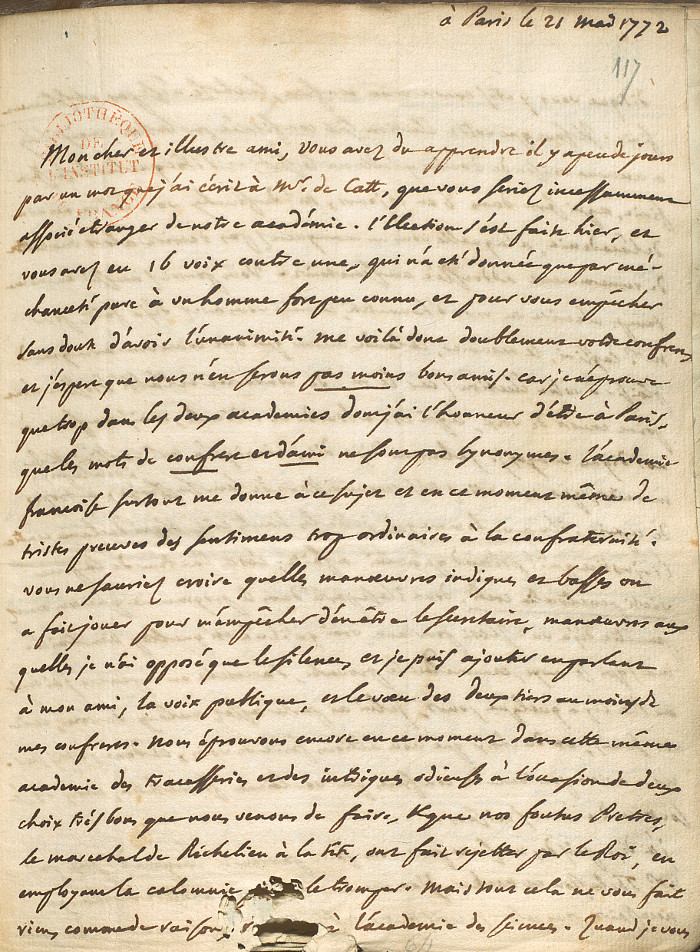 à Paris le 21 mai 1772
117
BIBLIOTHÈQUE
DE
L'INSTITUT
FRANCE
Mon cher et illustre ami, vous avez du apprendre il y a peu de jours
par un mot que j'ai écrit à Mr. de Catt, que vous seriez incessamment
associé etranger de notre académie. l'election s'est faite hier, et
vous avez eu 16 voix contre une, qui n'a eté donnée que par mé-
chanceté pure à un homme fort peu connu, et pour vous empêcher
sans doute d'avoir l'unanimité. me voilà donc doublement votre confrere,
et j'espere que nous n'en serons pas moins bons amis. car je n'éprouve
que trop dans les deux academies dont j'ai l'honneur d'être à Paris,
que les mots de confrere et d'ami ne sont pas synonymes. l'académie
françoise surtout me donne à ce sujet et en ce moment même de
tristes preuves des sentimens trop ordinaires à la confraternité.
vous ne sauriez croire quelles manœuvres indignes et basses on
a fait jouer pour m'empêcher d'en être le secretaire, manœuvres aux
quelles je n'ai opposé que le silence, et je puis ajouter en parlant
à mon ami, la voix publique, et le vœu des deux tiers au moins de
mes confreres. nous éprouvons encore en ce moment dans cette même
academie des tracasseries et des intrigues odieuses à l'occasion de deux
choix très bons que nous venons de faire, & que nos foutus Pretres,
le marechal de Richelieu à la tête, ont fait rejetter par le Roi, en
employant la calomnie le tromper. Mais tout cela ne vous fait
rien, comme de raison, à l'académie des sciences. Quand je vous